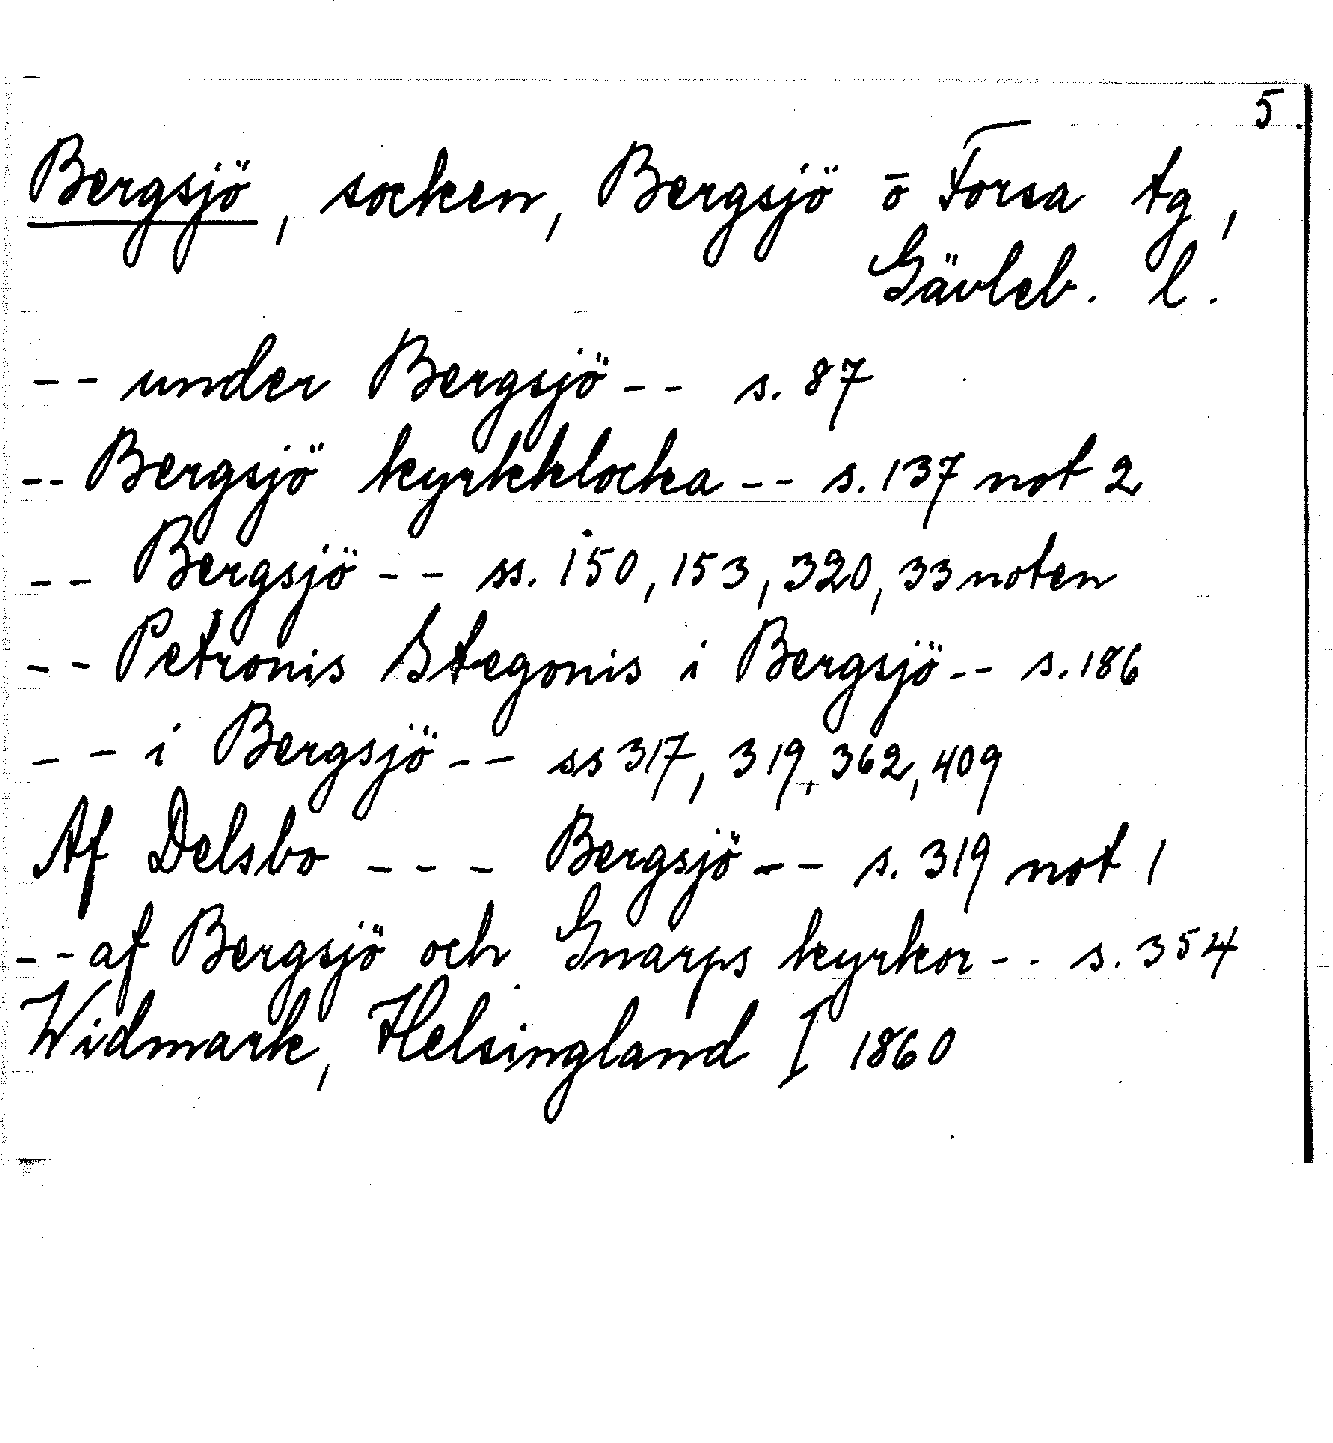 5.
Bergsjö, socken, Bergsjö o Forsa tg,
Gävleb. l.
-- under Bergsjö -- s. 87
-- Bergsjö kyrkklocka -- s. 137 not 2
-- Bergsjö -- ss. 150, 153, 320, 33 noten
-- Petronis Stegonis i Bergsjö -- s. 186
-- i Bergsjö -- ss 317, 319, 362, 409
Af Delsbo --- Bergsjö -- s. 319 not 1
-- af Bergsjö och Gnarps kyrkor -- s. 354
Widmark, Helsingland I 1860